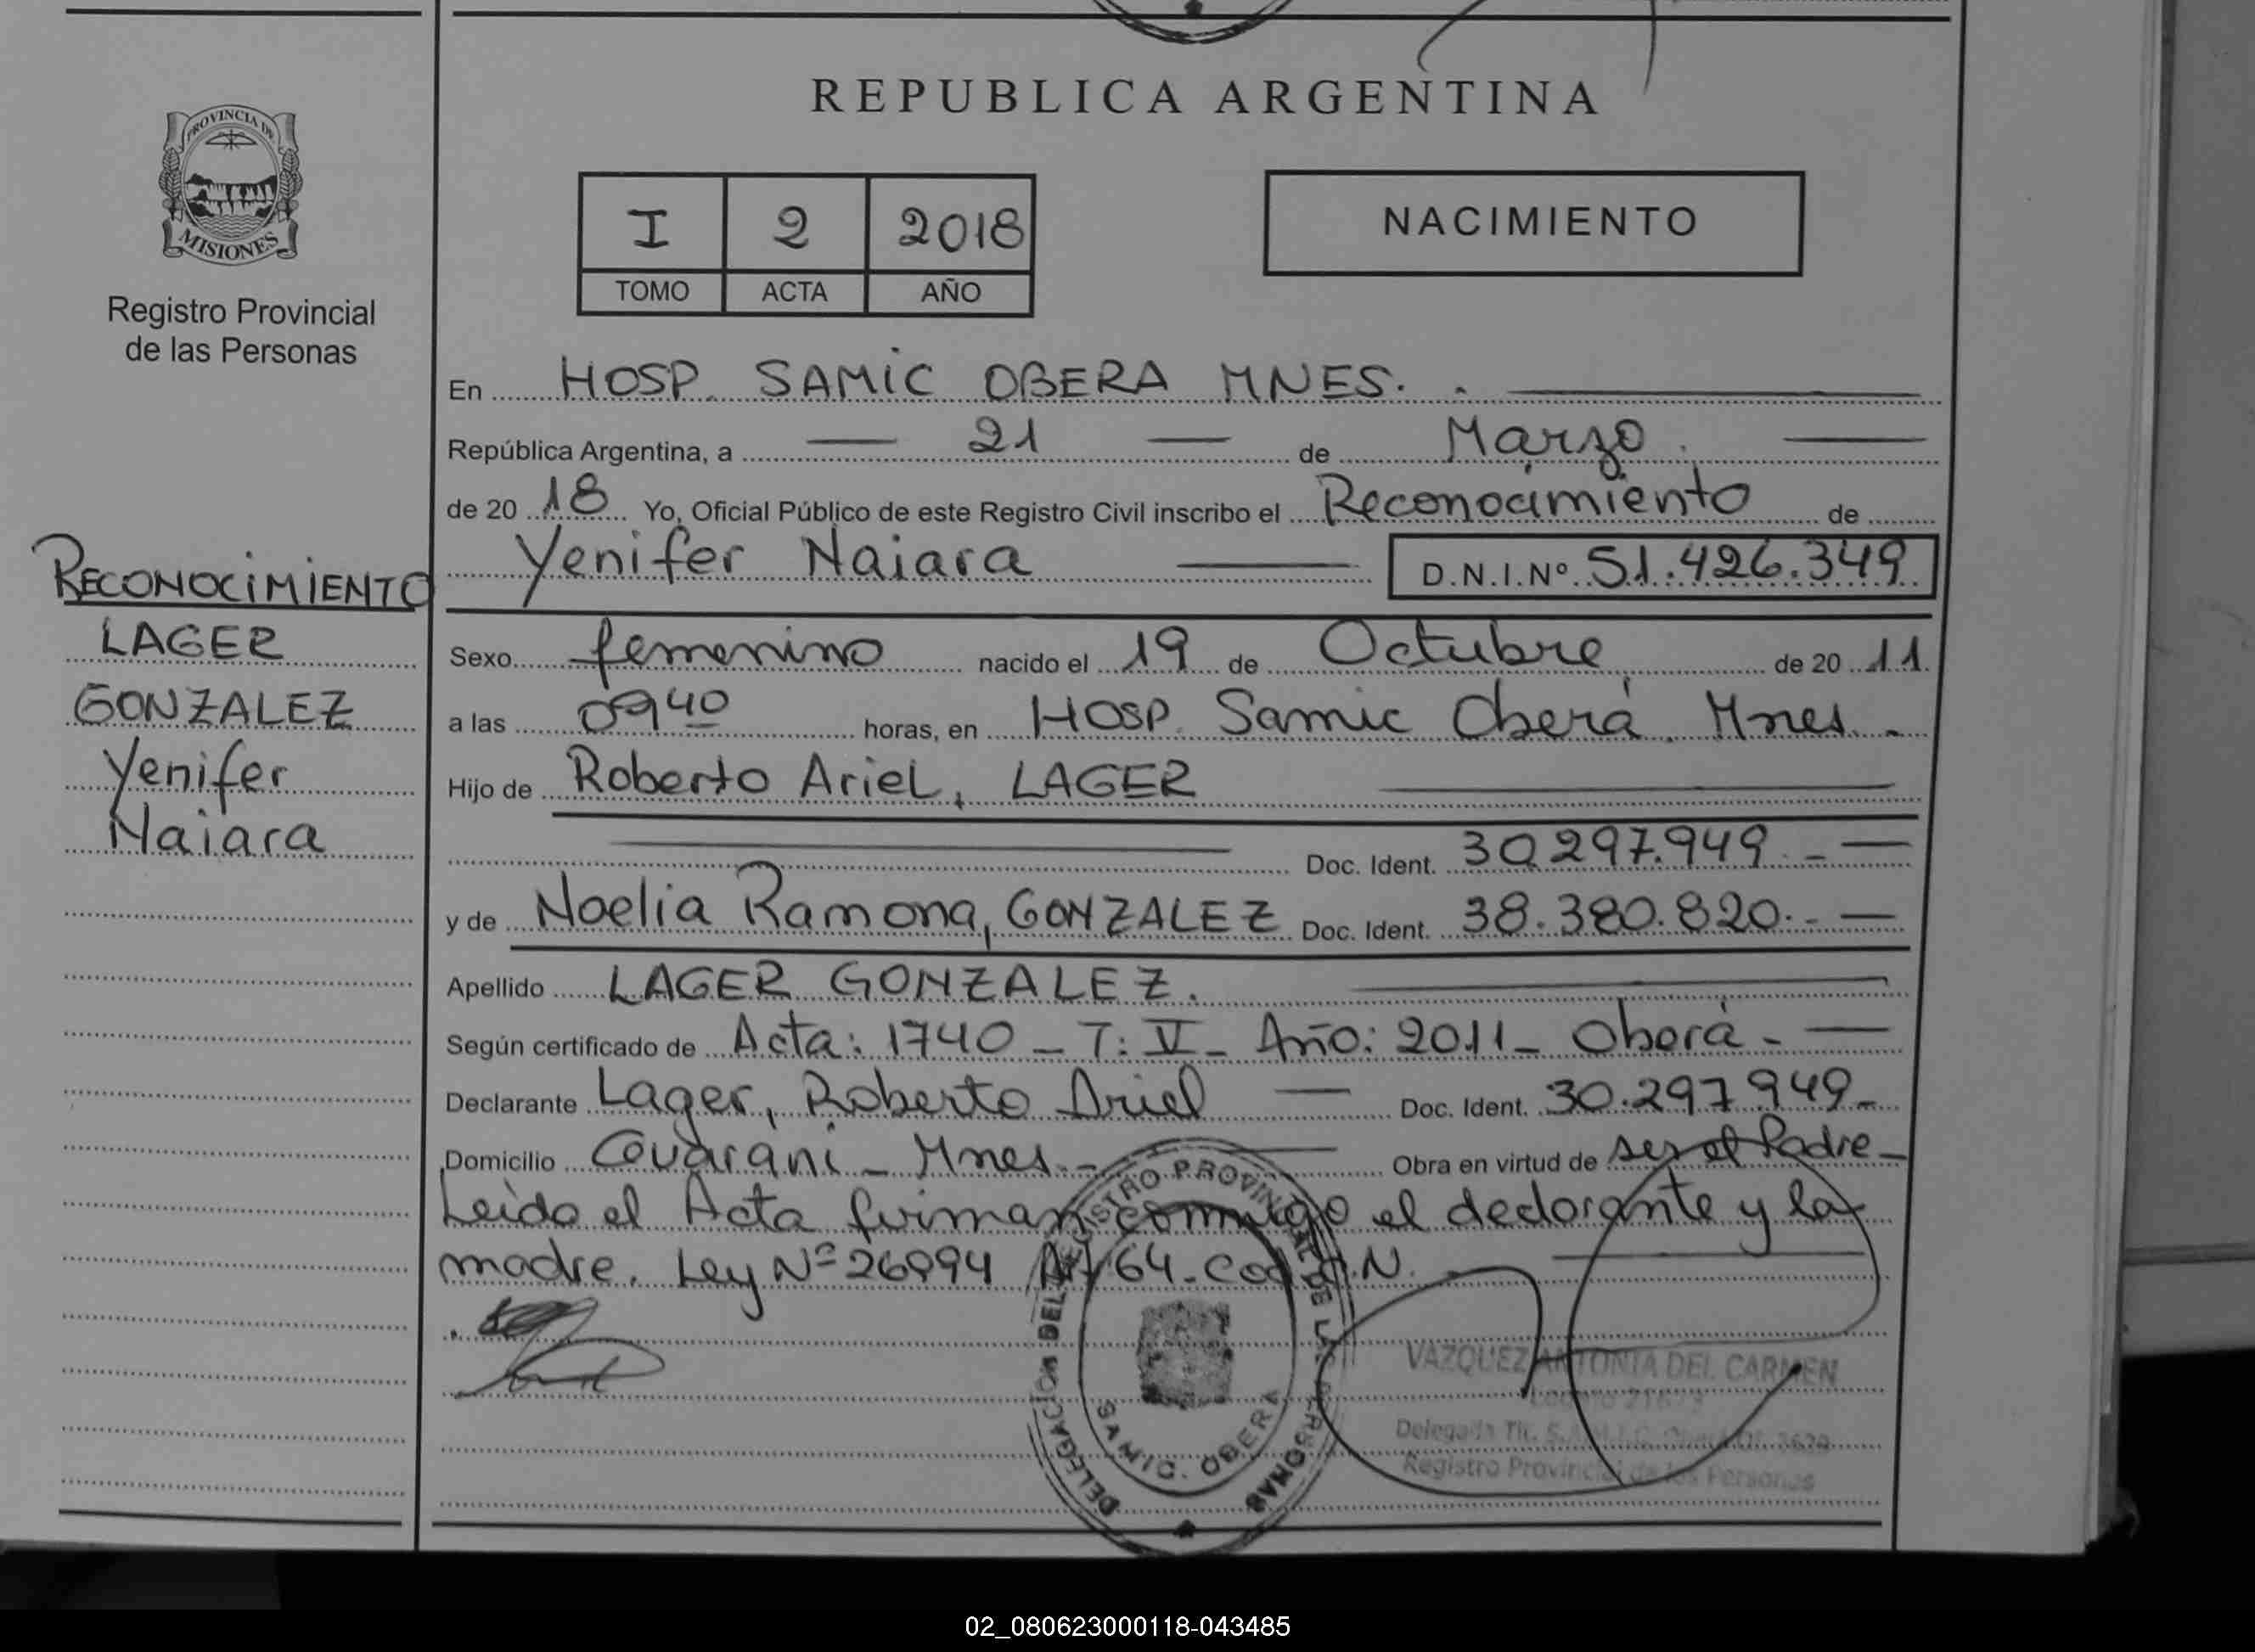 REPUBLICA ARGENTINA
PROVINCIA DE
MISIONES
Registro Provincial
de las Personas
I 2 2018
TOMO ACTA AÑO
NACIMIENTO
En HOSP. SAMIC OBERA MNES.
República Argentina, a 21 de Marzo
de 20 18 Yo, Oficial Público de este Registro Civil inscribo el Reconocimiento de
Yenifer Naiara D.N.I.Nº 51.426.349
RECONOCIMIENTO
LAGER
GONZALEZ
Yenifer
Naiara
Sexo femenino nacido el 19 de Octubre de 20 11.
a las 0940 horas, en Hosp. Samic Oberá Mnes.
Hijo de Roberto Ariel, LAGER
Doc. Ident. 30.297.949
y de Noelia Ramona, GONZALEZ Doc. Ident. 38.380.820
Apellido LAGER GONZALEZ.
Según certificado de Acta: 1740 - T: V - Año: 2011 - Oberá -
Declarante Lager, Roberto Ariel Doc. Ident. 30.297.949
Domicilio Guarani - Mnes. Obra en virtud de ser el Padre
Leido el Acta firman conmigo el declarante y la
madre. Ley Nº 26994 Art 64. N.
DELEGACION DEL REGISTRO PROVINCIAL DE LAS PERSONAS
SAMIC. OBERA
VAZQUEZ ANTONIA DEL CARMEN
Delegada Tit.
Registro Provincial de las Personas
02_080623000118-043485